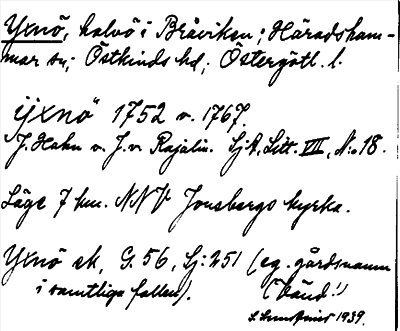 Yxnö, halvö i Bråviken; Häradsham-
mar sn; Östkinds hd; Östergötl. l.
ÿxnö 1752 o. 1767.
J. Hahn o. J. v. Rajalin. Sjk, Litt. VII, N:o 18.
Läge 7 km. NNV Jonsbergs kyrka.
Yxnö ek, G. 56, Sj: 251 (eg. gårdsnamn
i samtliga fallen). (Vänd!)
1939.